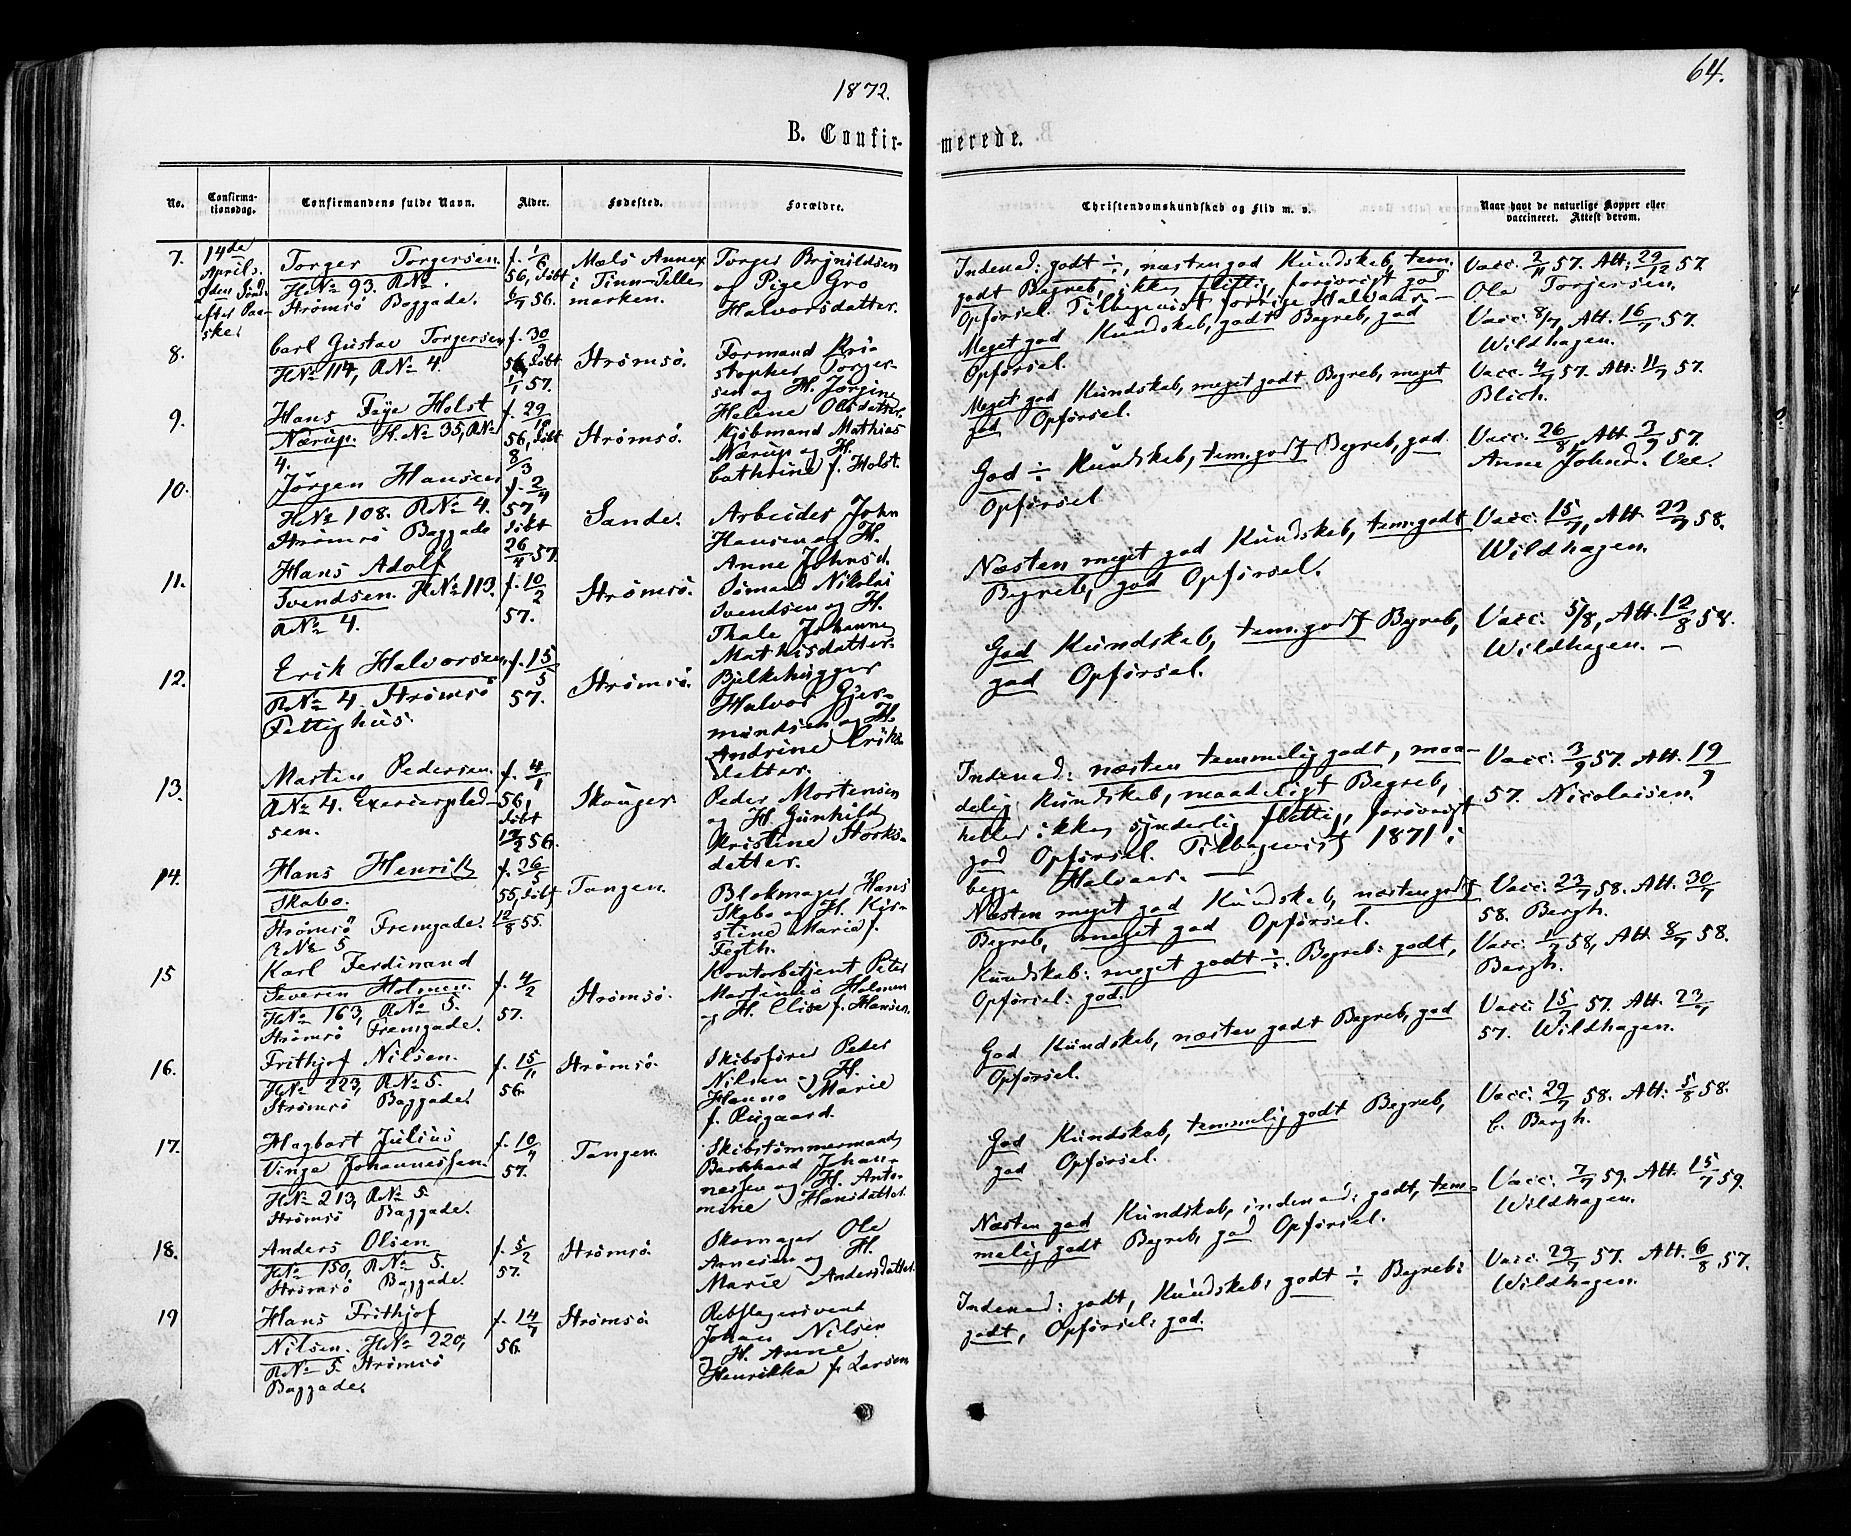 1872.
64.
B. Confir-
merede.
No.
Confirma-
tionsdag.
Confirmandens fulde Navn.
Alder.
Fødested.
Forældre.
Christendomskundskab og Flid m. v.
Naar havt de naturlige Kopper eller
vaccineret. Attest derom.
7.
14de
Aprils.
2den Sønd.
efter Paa-
ske.
Torger Torgersen.
H.No 93. R.No
Strømsö Baggade.
f. 1/6
56, døbt
6/7 56.
Mæls Annex
i Tinn Telle-
marken.
Torger Brynildsen
og Pige Gro
Halvorsdatter.
Indenad: godt ÷, næsten god Kundskab, tem.
godt Begreb, ikke flittig, forøvrigt god
Opførsel. Tilbagevist forrige Halvaar. —
Vacc. 2/11 57. Att. 29/12 57.
Ole Torjersen.
8.
Carl Gustav Torgersen
H.No 114, R.No 4.
f. 30/9
56, døbt
1/1 57.
Strømsö.
Formand Kri-
stopher Torger-
sen og H. Jørgine
Helene Olsdatter.
Meget god Kundskab, godt Begreb, god
Opførsel.
Vacc. 8/7, Att. 16/7 57.
Wildhagen.
9.
Hans Feye Holst
Nærup. H.No 35, R.No
4.
f. 29/10
56, døbt
8/3
Strømsö.
Kjøbmand Mathias
Nærup og H.
Cathrine f. Holst.
Meget god Kundskab, meget godt Begreb, meget
god Opførsel.
Vacc. 4/7 57. Att. 11/7 57.
Blich.
10.
Jørgen Hansen
H.No 108. R.No 4.
Strømsö Baggade
f. 2/4
57,
døbt
26/4 57.
Sande.
Arbeider John
Hansen og H.
Anne Johnsd.
God ÷ Kundskab, tem. godt Begreb, god
Opførsel.
Vacc. 26/8, Att. 3/9 57.
Anne Johnsd.
11.
Hans Adolf
Svendsen. H.No 113.
R.No 4.
f. 10/2
57.
Strømsö.
Sømand Nikolai
Svendsen og H.
Thale Johanne
Mathisdatter.
Næsten meget god Kundskab, tem. godt
Begreb, god Opførsel.
Vacc. 15/7, Att. 23/7 58.
Wildhagen.
12.
Erik Halvorsen
R.No 4 Strømsö
Fattighus.
f. 15/5
57.
Strømsö.
Bjelkehugger
Halvor Gjer-
mundsen og H.
Andrine Eriks-
datter.
God Kundskab, tem. godt Begreb,
god Opførsel.
Vacc. 5/8, Att. 12/8 58.
Wildhagen. —
13.
Martin Pedersen.
R.No 4. Exercerplad-
sen.
f. 4/1
56,
døbt
17/2 56.
Skouger
Peder Mortensen
og H. Gunhild
Kristine Storks-
datter.
Indenad: næsten temmelig godt, maa-
delig Kundskab, maadeligt Begreb,
heller ikke synderlig flittig, forøvrigt
god Opførsel. Tilbagevist 1871 i
begge Halvaar. —
Vacc. 3/9 57. Att. 19/9
57. Nicolaisen.
14.
Hans Henrik
Skabo.
Strømsö Fremgade.
R.No 5
f. 26/5
55, døbt
12/8 55.
Tangen.
Blokmager Hans
Skabo og H. Kir-
stine Marie f.
Fegth.
Næsten meget god Kundskab, næsten godt
Begreb, meget god Opførsel.
Vacc. 23/7 58. Att. 30/7
58. Bergh.
15
Karl Ferdinand
Severin Holmen.
H.No 163, R.No 5.
Strømsö Fremgade.
f. 4/2
57.
Strømsö.
Kontorbetjent Peter
Martinius Holmen
og H. Elise f. Hansen.
Kundskab: meget godt ÷. Begreb: godt,
Opførsel: god.
Vacc. 1/7 58, Att. 8/7 58.
Bergh.
16.
Frithjof Nilsen.
H.No 223, R.No 5.
Strømsö Baggade.
f. 15/11
56.
Strømsö.
Skibsfører Peder
Nilsen og H.
Hanna Marie
f. Rugaard.
God Kundskab, næsten godt Begreb, god
Opførsel.
Vacc. 15/7 57. Att. 23/7
57. Wildhagen.
17.
Hagbart Julius
Vinge Johannessen.
H.No 213, R.No 5.
Strømsö Baggade.
f. 10/4
57.
Tangen.
Skibstømmermand
Bernhard Johan-
nesen og H. Anto-
mine Hansdatter.
God Kundskab, temmelig godt Begreb,
god Opførsel.
Vacc. 29/7 58. Att. 5/8 58.
C. Bergh.
18.
Anders Olsen
H.No 150, R.No 5.
Strømsö Baggade.
f. 5/2
57.
Strømsö.
Skomager Ole
Arnesen og H.
Marie Andersdatter.
Næsten god Kundskab, indenad: godt, tem-
melig godt Begreb, god Opførsel.
Vacc. 7/7 59. Att. 15/7 59.
Wildhagen.
19
Hans Frithjof
Nilsen. H.No 220,
R.No 5. Strømsö
Baggade.
f. 14/7
56.
Strømsö.
Rebslagersvend
Johan Nilsen
og H. Anne
Henrikka f. Larsen
Indenad: godt, Kundskab: godt ÷ Begreb:
godt, Opførsel: god.
Vacc. 29/7 57. Att. 6/8 57.
Wildhagen.